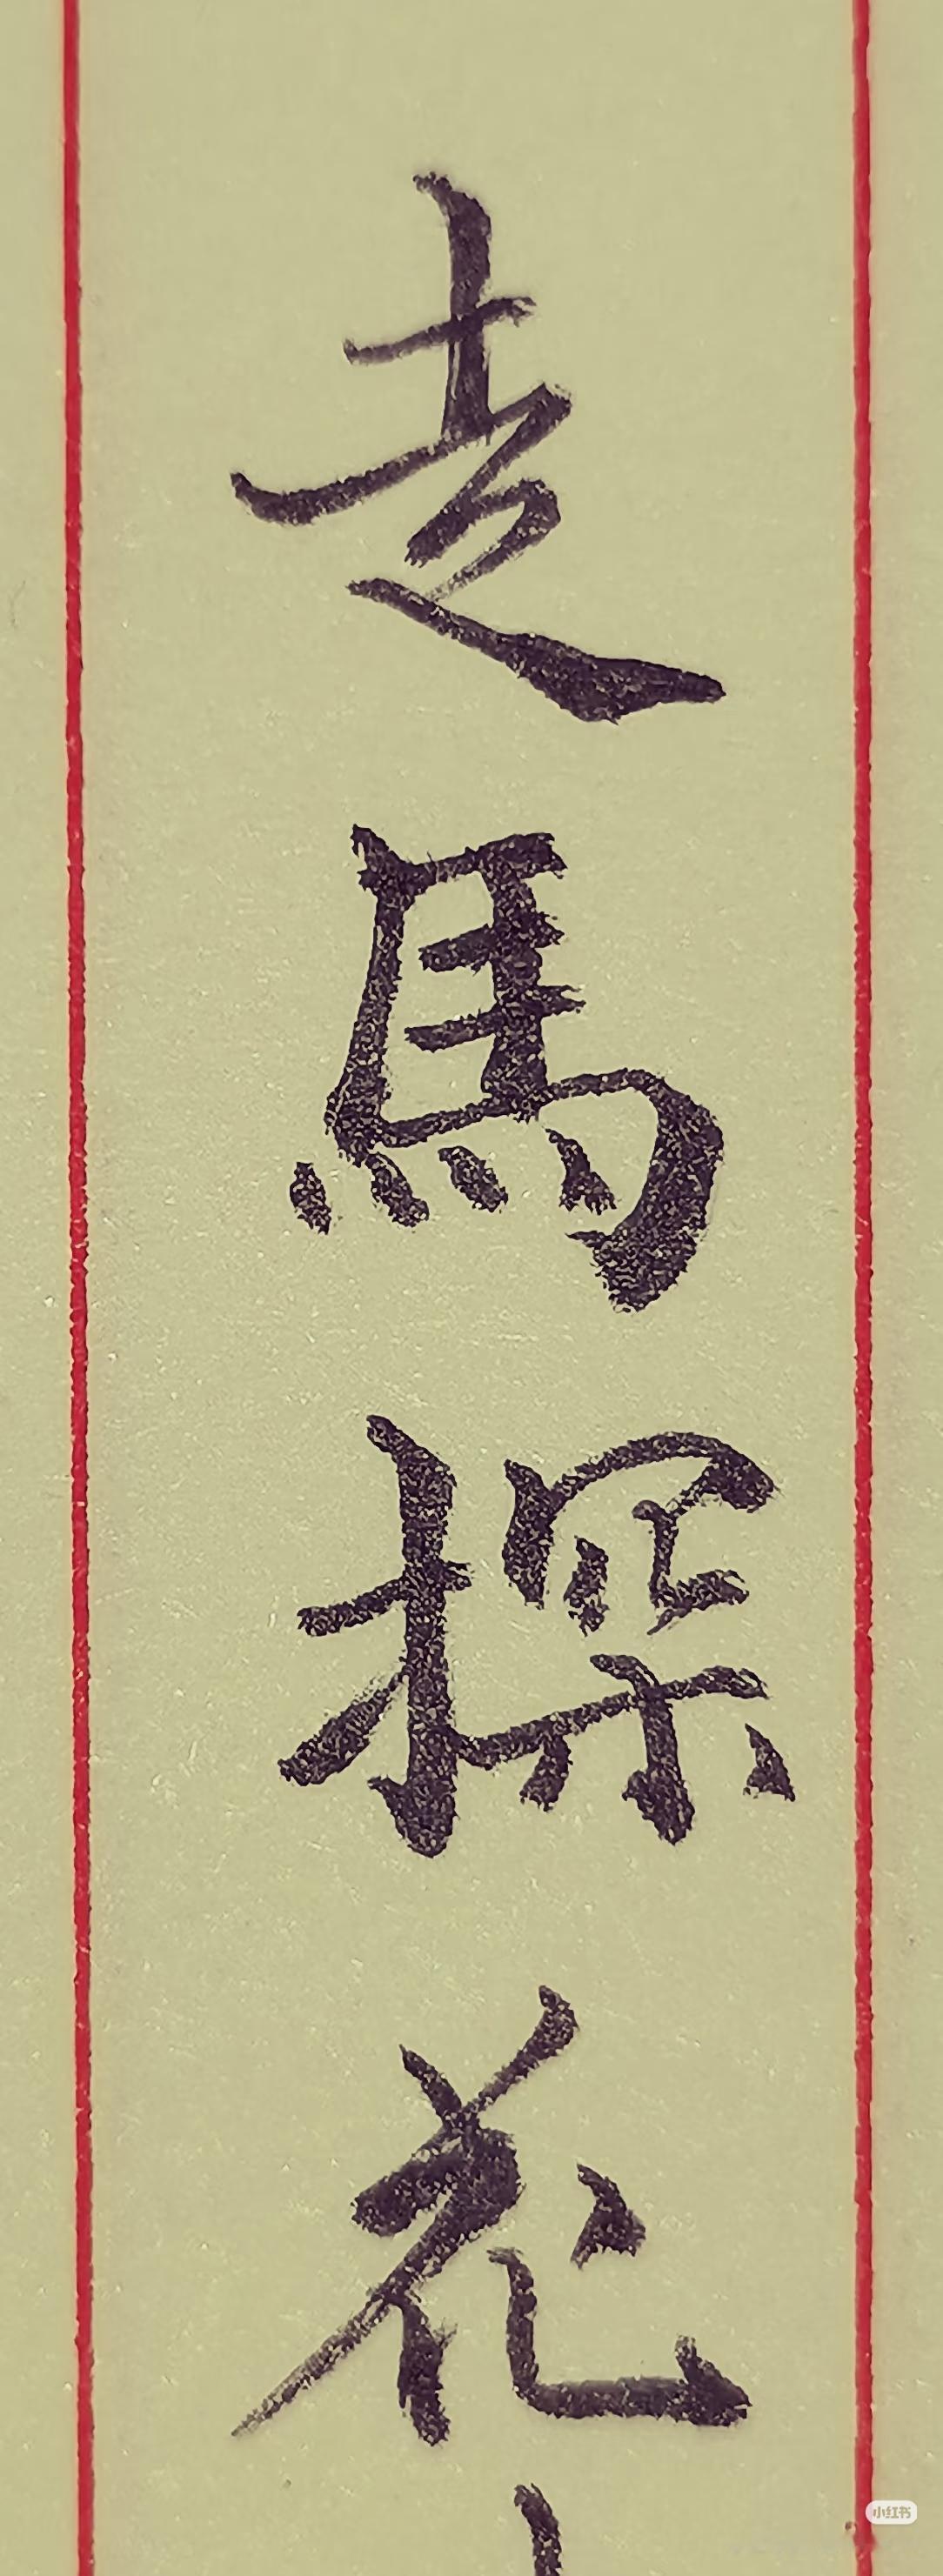 走馬探花
小红书